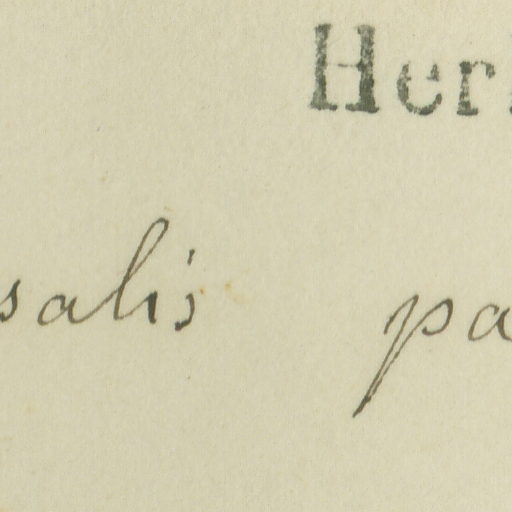 Her
salis pa